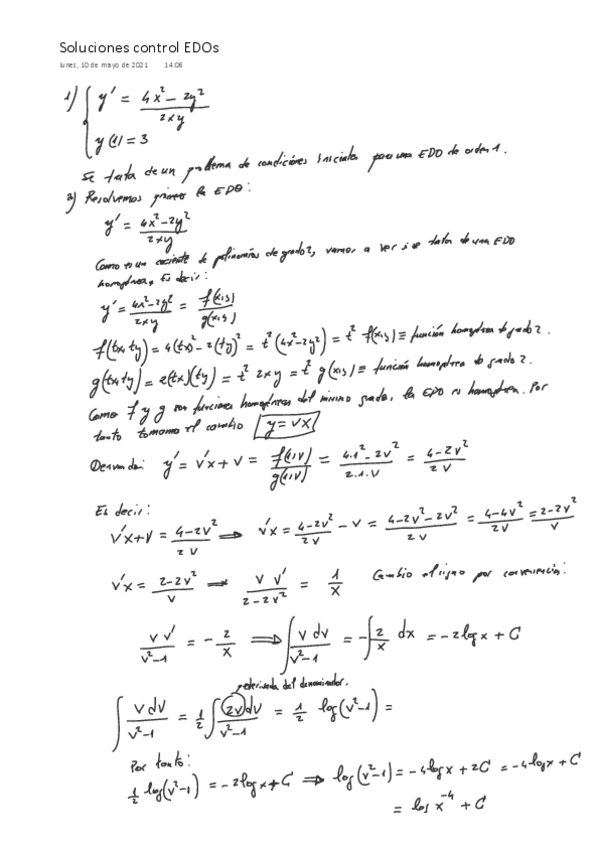 Soluciones control EDOs
lunes, 10 de mayo de 2021 14:06
1) { y' = (4x² - 2y²)/(2xy)
y(1) = 3
Se trata de un problema de condiciones iniciales para una EDO de orden 1.
a) Resolvemos primero la EDO:
y' = (4x² - 2y²)/(2xy)
Como es un cociente de polinomios de grado 2, vamos a ver si se trata de una EDO
homogénea, Es decir:
y' = (4x² - 2y²)/(2xy) = f(x,y)/g(x,y)
f(tx,ty) = 4(tx)² - 2(ty)² = t²(4x² - 2y²) = t² f(x,y) ≡ función homogénea de grado 2.
g(tx,ty) = 2(tx)(ty) = t² 2xy = t² g(x,y) ≡ función homogénea de grado 2.
Como f y g son funciones homogéneas del mismo grado, la EDO es homogénea. Por
tanto tomamos el cambio y = vx
Derivando: y' = v'x + v = f(1,v)/g(1,v) = (4·1² - 2v²)/(2·1·v) = (4 - 2v²)/(2v)
Es decir:
v'x + v = (4 - 2v²)/(2v) ⟹ v'x = (4 - 2v²)/(2v) - v = (4 - 2v² - 2v²)/(2v) = (4 - 4v²)/(2v) = (2 - 2v²)/v
v'x = (2 - 2v²)/v ⟹ v v'/(2 - 2v²) = 1/x Cambio el signo por conveniencia:
v v'/(v² - 1) = -2/x ⟹ ∫ v dv/(v² - 1) = -∫ 2/x dx = -2 log x + C
derivada del denominador.
∫ v dv/(v² - 1) = 1/2 ∫ 2v dv/(v² - 1) = 1/2 log(v² - 1) =
Por tanto:
1/2 log(v² - 1) = -2 log x + C ⟹ log(v² - 1) = -4 log x + 2C = -4 log x + C
= log x⁻⁴ + C